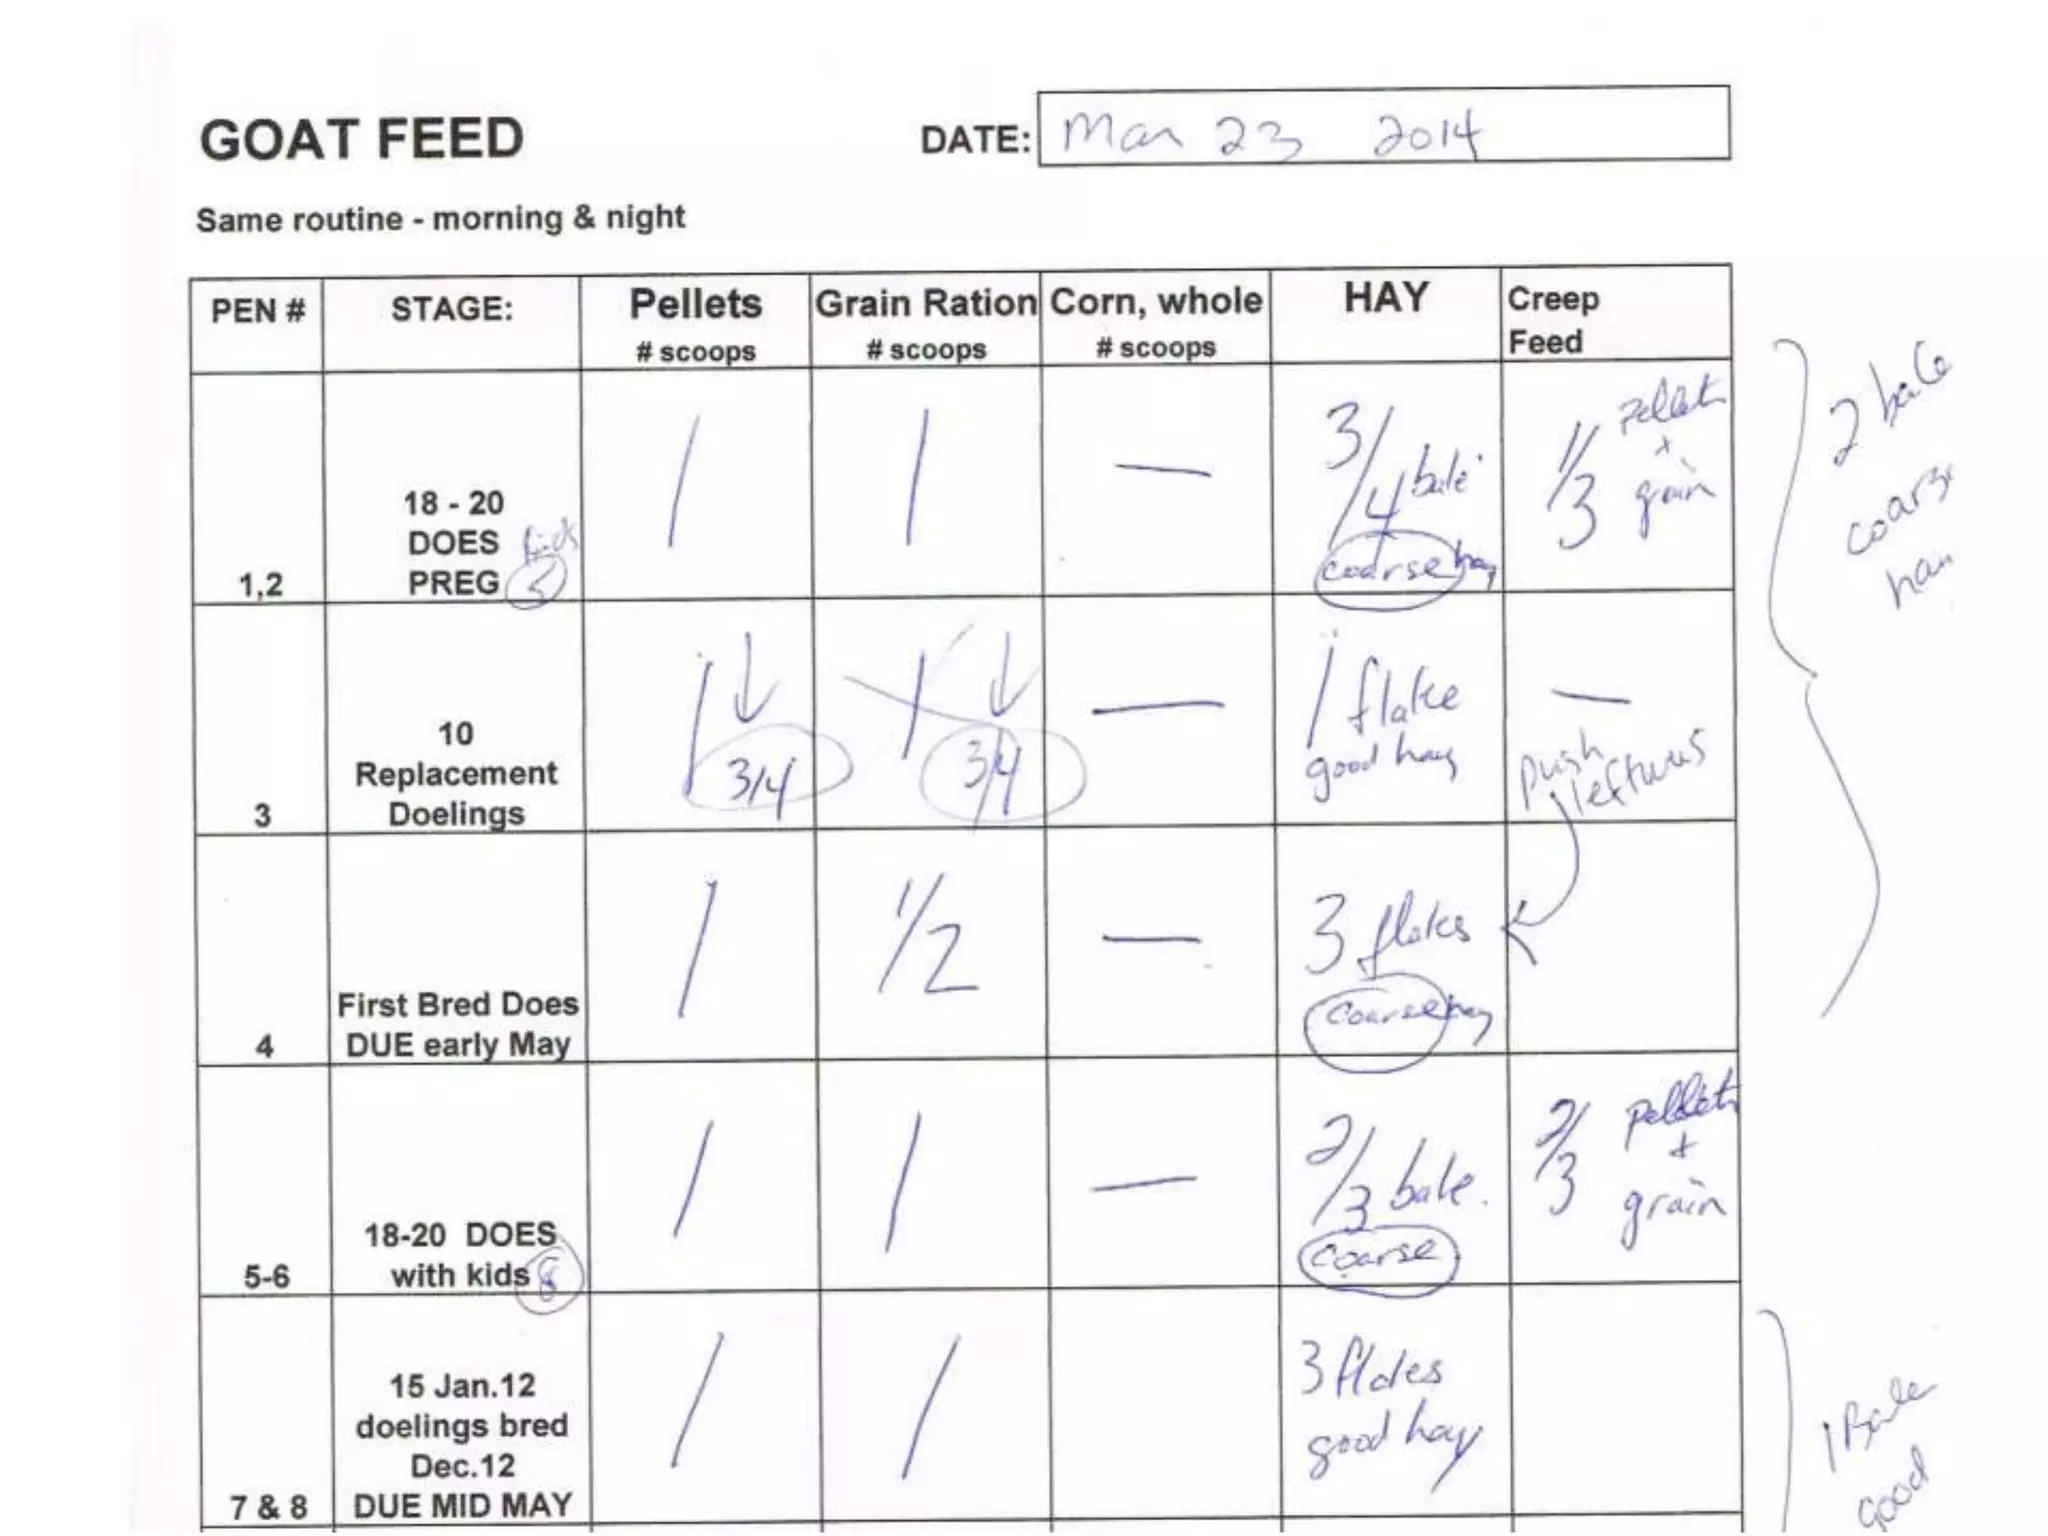 GOAT FEED
DATE: Mar 23 2014
Same routine - morning & night
PEN #
STAGE:
Pellets
# scoops
Grain Ration
# scoops
Corn, whole
# scoops
HAY
Creep
Feed
1,2
18 - 20
DOES kids
PREG 5
1
1
—
3/4 bale
coarse hay
1/3 Pellets
+
grain
3
10
Replacement
Doelings
1 ↓
3/4
1 ↓
3/4
—
1 flake
good hay
—
push
leftovers
4
First Bred Does
DUE early May
1
1/2
—
3 flakes
coarse hay
5-6
18-20 DOES
with kids 8
1
1
—
2/3 bale.
coarse
2/3 pellets
+
grain
7 & 8
15 Jan.12
doelings bred
Dec.12
DUE MID MAY
1
1
3 flakes
good hay
2 bale
coarse
hay
1 Bale
good